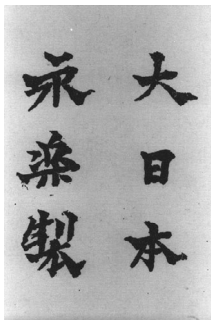 大日本
永楽製